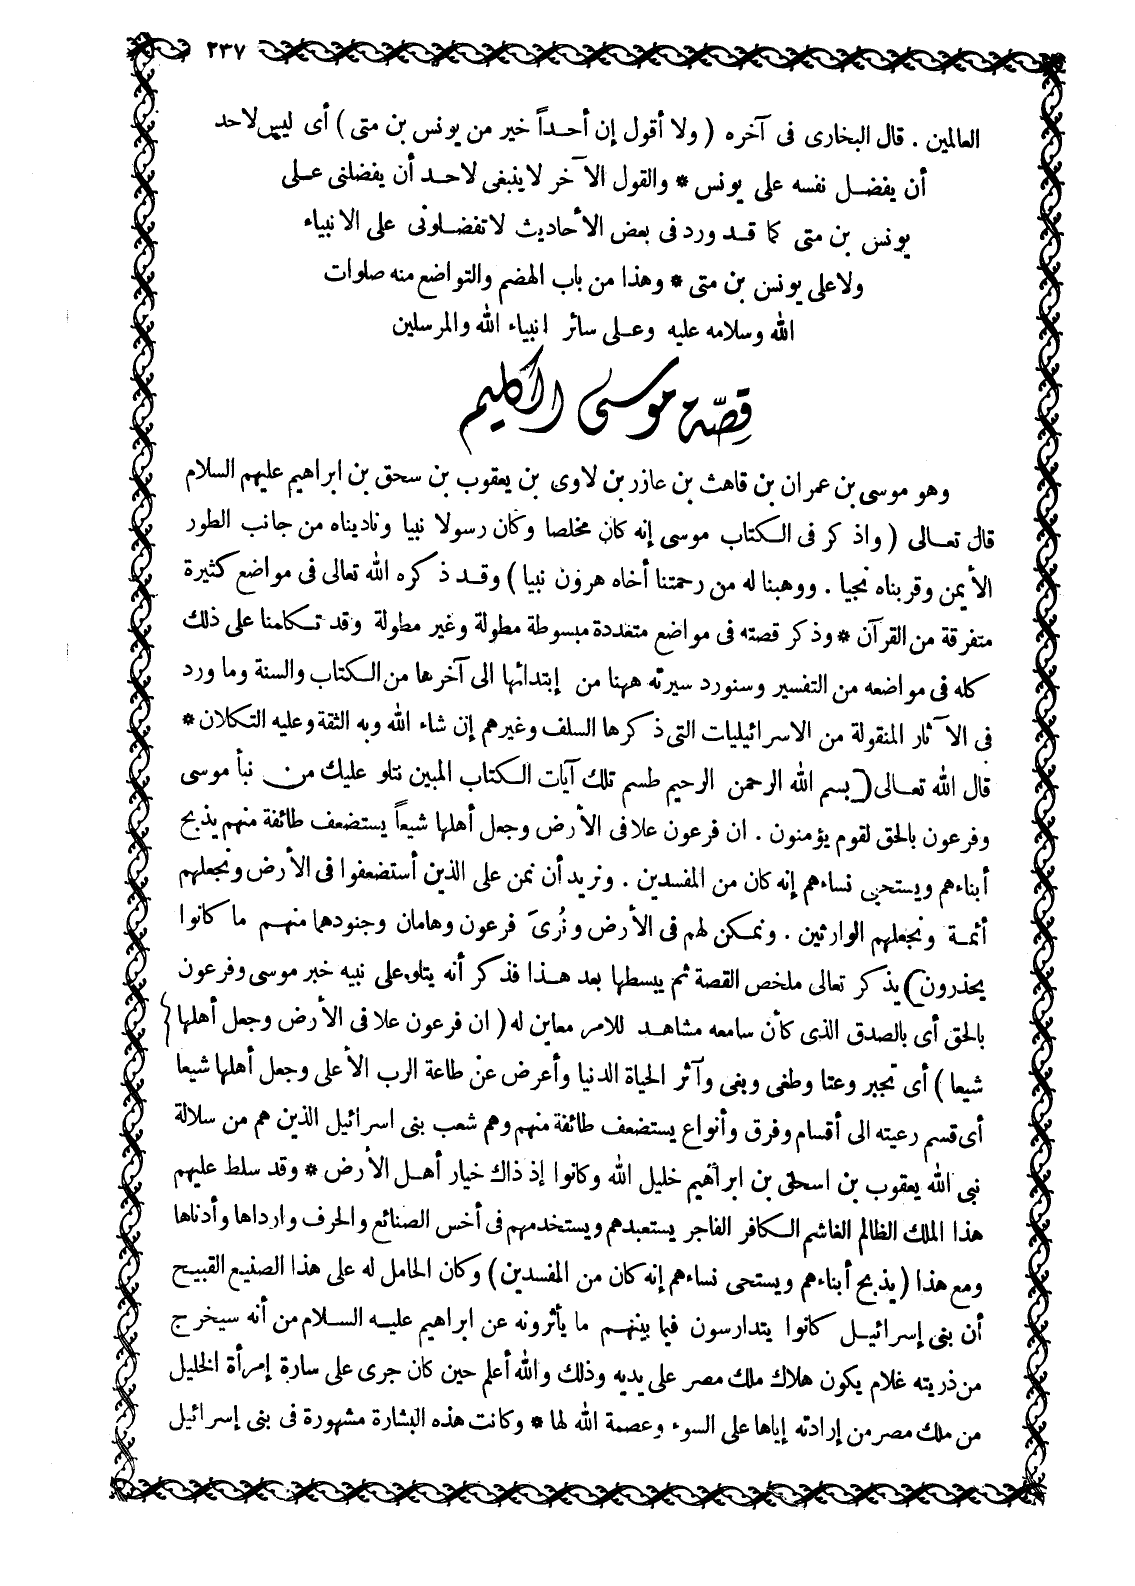 ٢٣٧
العالمين . قال البخارى فى آخره ( ولا أقول إن أحداً خير من يونس بن متى ) أى ليس لاحد
أن يفضل نفسه على يونس * والقول الآخر لاينبغى لاحد أن يفضلنى على
يونس بن متى كما قد ورد فى بعض الأحاديث لاتفضلونى على الانبياء
ولاعلى يونس بن متى * وهذا من باب الهضم والتواضع منه صلوات
الله وسلامه عليه وعلى سائر انبياء الله والمرسلين
قصّة موسى الكليم
وهو موسى بن عمران بن قاهث بن عازر بن لاوى بن يعقوب بن سحق بن ابراهيم عليهم السلام
قال تعالى ( واذكر فى الكتاب موسى إنه كان مخلصا وكان رسولا نبيا وناديناه من جانب الطور
الأيمن وقربناه نجيا . ووهبنا له من رحمتنا أخاه هرون نبيا ) وقد ذكره الله تعالى فى مواضع كثيرة
متفرقة من القرآن * وذكر قصته فى مواضع متعددة مبسوطة مطولة وغير مطولة وقد تكلمنا على ذلك
كله فى مواضعه من التفسير وسنورد سيرته ههنا من إبتدائها الى آخرها من الكتاب والسنة وما ورد
فى الآثار المنقولة من الاسرائيليات التى ذكرها السلف وغيرهم إن شاء الله وبه الثقة وعليه التكلان *
قال الله تعالى ( بسم الله الرحمن الرحيم طسم تلك آيات الكتاب المبين نتلو عليك من نبأ موسى
وفرعون بالحق لقوم يؤمنون . ان فرعون علا فى الأرض وجعل أهلها شيعاً يستضعف طائفة منهم يذبح
أبناءهم ويستحيى نساءهم إنه كان من المفسدين . ونريد أن نمن على الذين أستضعفوا فى الأرض ونجعلهم
أئمة ونجعلهم الوارثين . ونمكن لهم فى الأرض ونُرىَ فرعون وهامان وجنودهما منهم ما كانوا
يحذرون ) يذكر تعالى ملخص القصة ثم يبسطها بعد هذا فذكر أنه يتلو على نبيه خبر موسى وفرعون
بالحق أى بالصدق الذى كأن سامعه مشاهد للامر معاين له ( ان فرعون علا فى الأرض وجعل أهلها
شيعا ) أى تجبر وعتا وطغى وبغى وآثر الحياة الدنيا وأعرض عن طاعة الرب الأعلى وجعل أهلها شيعا
أى قسم رعيته الى أقسام وفرق وأنواع يستضعف طائفة منهم وهم شعب بنى اسرائيل الذين هم من سلالة
نبى الله يعقوب بن اسحق بن ابراهيم خليل الله وكانوا إذ ذاك خيار أهل الأرض * وقد سلط عليهم
هذا الملك الظالم الغاشم الكافر الفاجر يستعبدهم ويستخدمهم فى أخس الصنائع والحرف وارداها وأدناها
ومع هذا ( يذبح أبناءهم ويستحى نساءهم إنه كان من المفسدين ) وكان الحامل له على هذا الصنيع القبيح
أن بنى إسرائيل كانوا يتدارسون فيما بينهم ما يأثرونه عن ابراهيم عليه السلام من أنه سيخرج
من ذريته غلام يكون هلاك ملك مصر على يديه وذلك والله أعلم حين كان جرى على سارة إمرأة الخليل
من ملك مصر من إرادته إياها على السوء وعصمة الله لها * وكانت هذه البشارة مشهورة فى بنى إسرائيل